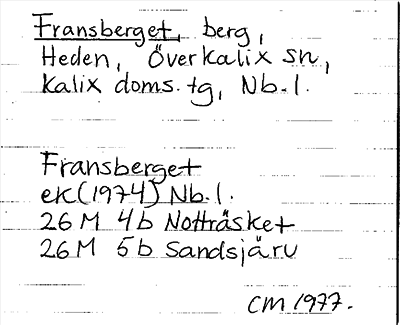 Fransberget, berg,
Heden, Överkalix sn,
Kalix doms. tg, Nb. l.
Fransberget
ek (1974) Nb. l.
26 M 4b Notträsket
26 M 5b Sandsjärv
CM 1977.